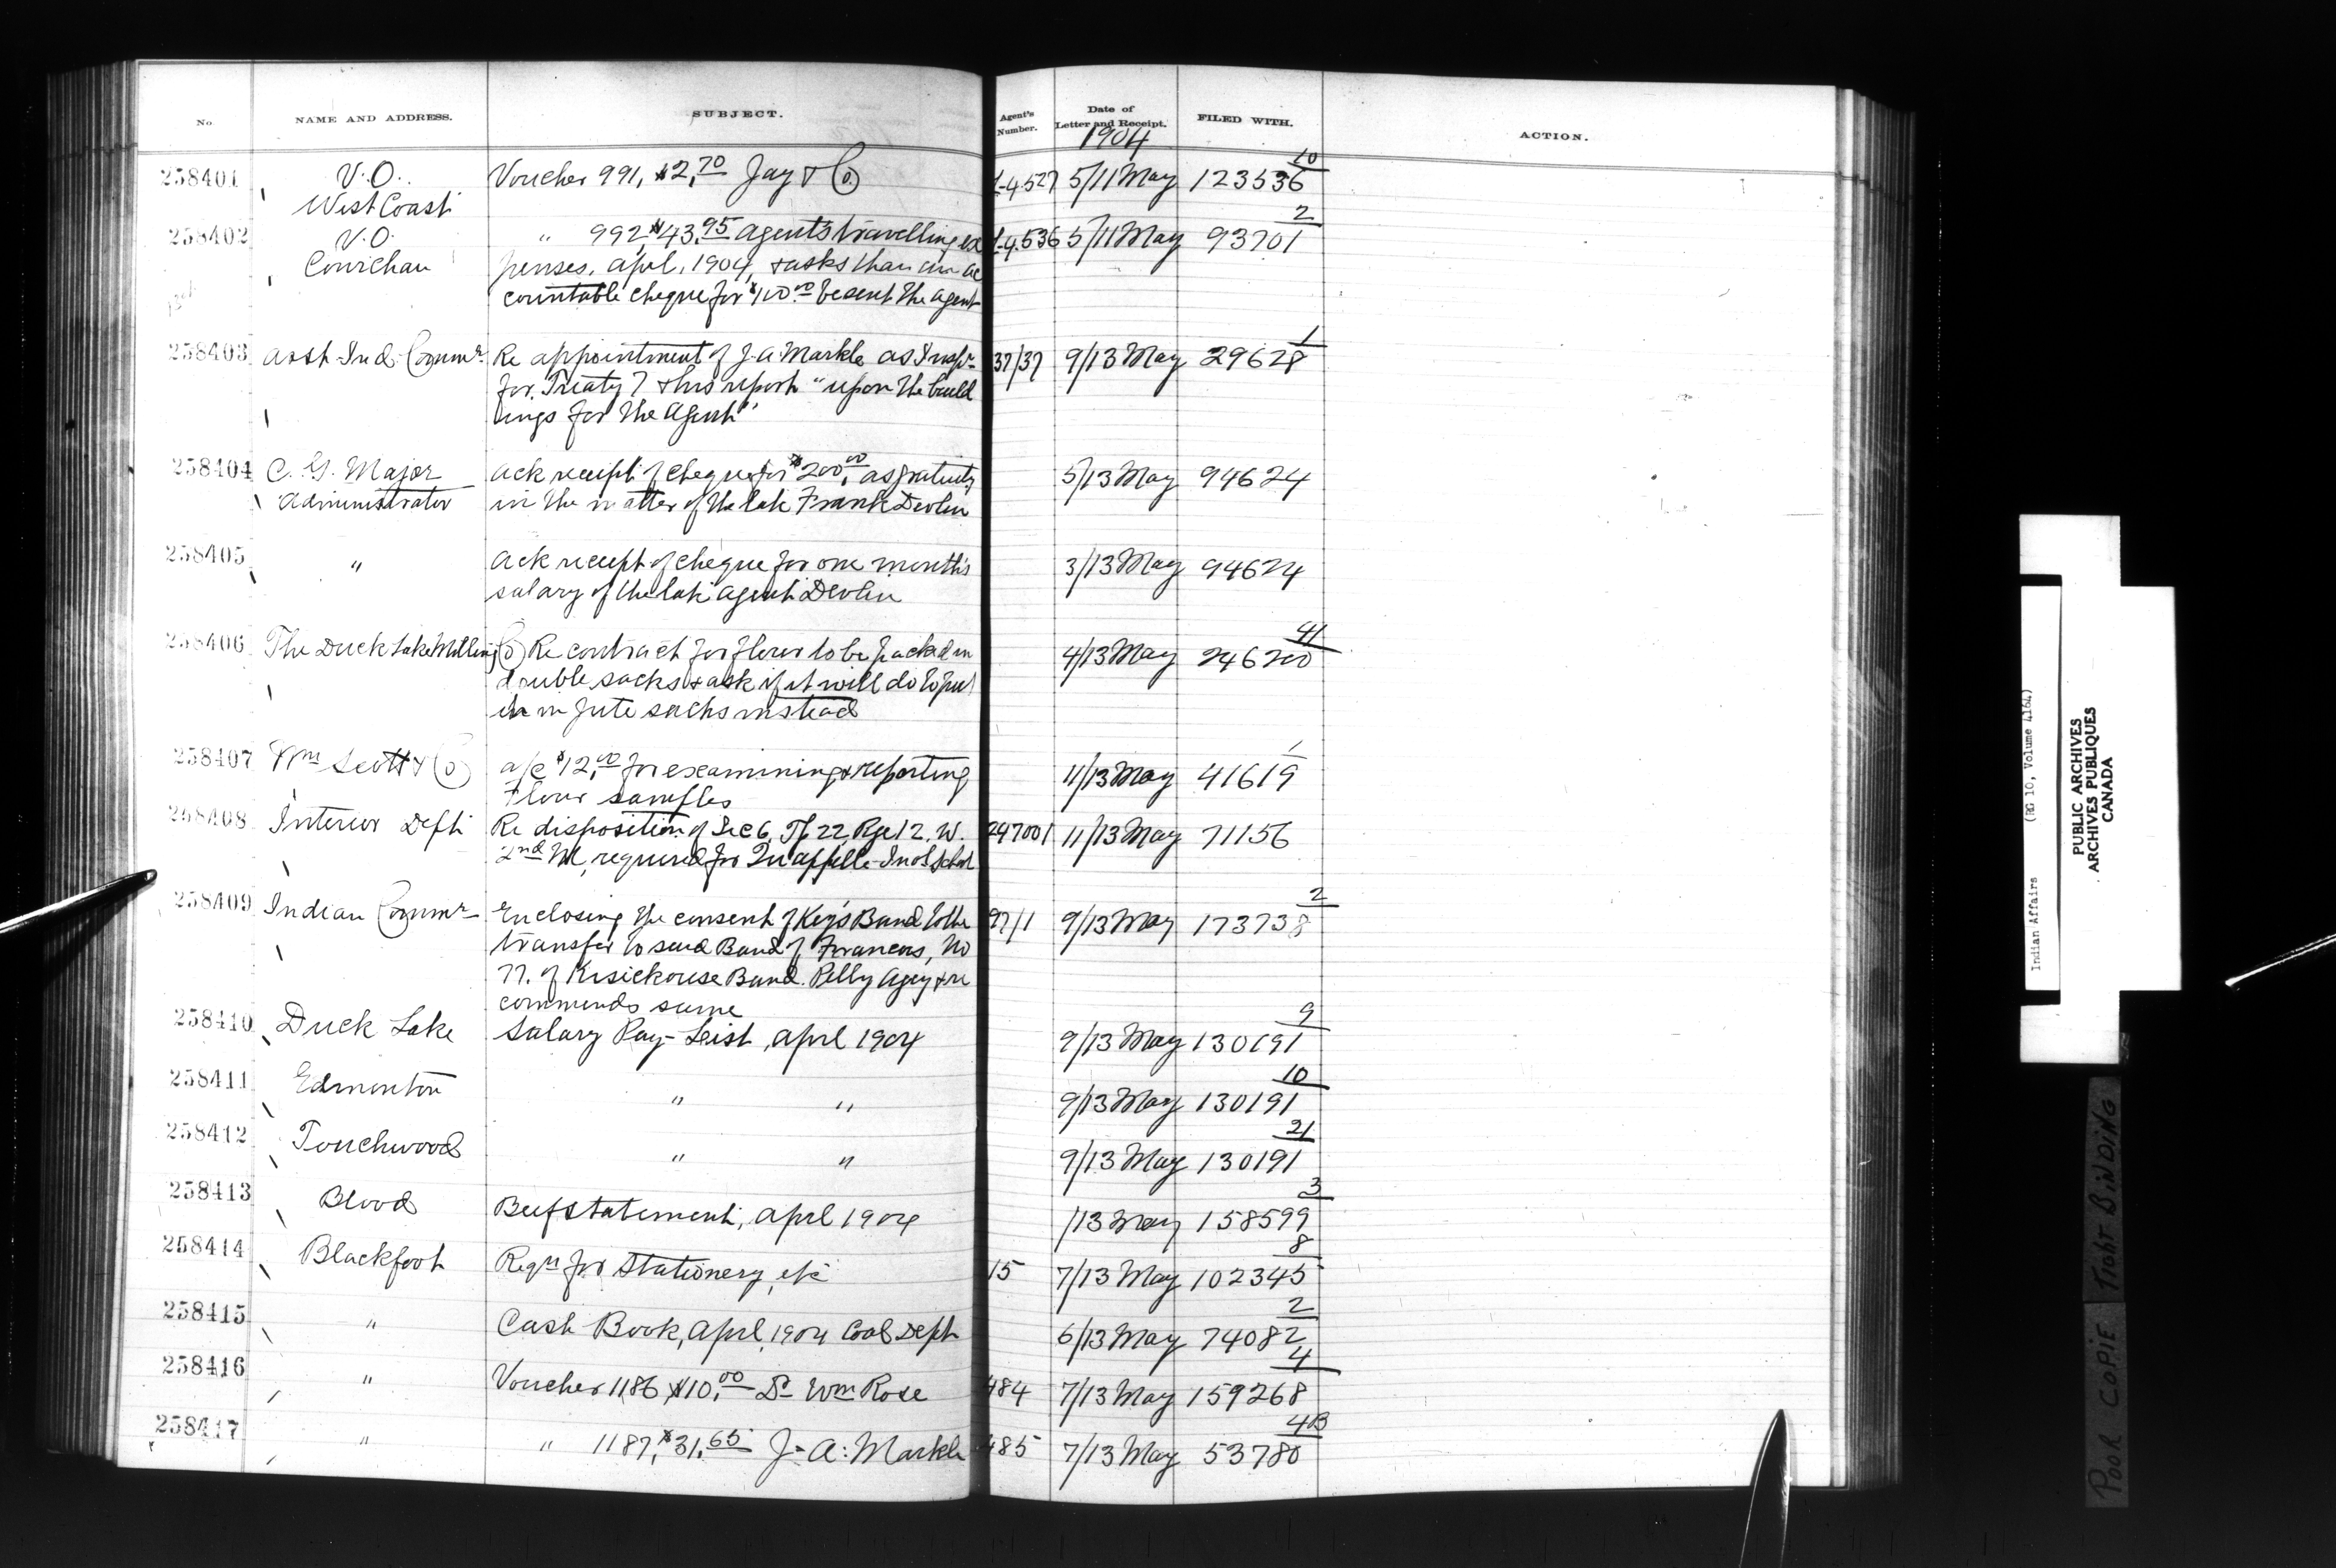 No NAME AND ADDRESS. SUBJECT. Agent's Number. Date of Letter and Receipt. FILED WITH. ACTION.
1904
10
258401 V.O. Voucher 991, $2,70 Jay & Co. L-4527 5/11 May 123536
West Coast
2
258402 V.O. " 992, $43,95 Agents travelling ex L-4536 5/11 May 93701
Cowichan penses, April, 1904, & asks than an ac
countable cheque for $100.00 be sent the Agent
1
258403 Asst Ind. Commr Re appointment of J.A. Markle as Inspr 37/37 9/13 May 29628
for Treaty 7 & his report "upon the build
ings for the Agent"
258404 C. G. Major Ack receipt of cheque for $200,00 as gratuity 5/13 May 94624
Administrator in the matter of the late Frank Devlin
258405 " Ack receipt of cheque for one month's 3/13 May 94624
salary of the late Agent Devlin
41
258406 The Duck Lake Milling Co Re contract for flour to be packed in 4/13 May 246200
double sacks & ask if it will do to put
it in jute sacks instead
1
258407 Wm Scott & Co a/c $12,00 for examining & reporting 11/13 May 41619
Flour samples
258408 Interior Dept Re disposition of Sec 6, Tp 22, Rge 12. W. 247001 11/13 May 71156
2nd M, required for Qu'appelle Indl School
2
258409 Indian Commr Enclosing the consent of Key's Band to the 97/1 9/13 May 173738
transfer to said Band of Francois, No
77. of Kisickouse Band. Pelly Agcy & re
commends same
9
258410 Duck Lake Salary Pay-List, April 1904 9/13 May 130191
10
258411 Edmonton " " 9/13 May 130191
21
258412 Touchwood " " 9/13 May 130191
3
258413 Blood Beef statement, April 1904 /13 May 158599
8
258414 Blackfoot Reqn for Stationery, etc 15 7/13 May 102345
2
258415 " Cash Book, April, 1904 Coal Dept 6/13 May 74082
4
258416 " Voucher 1186 $10,00 Dr Wm Rose 484 7/13 May 159268
4B
258417 " " 1187, $31,65 J. A. Markle 485 7/13 May 53780
Indian Affairs (RG 10, Volume 4164)
PUBLIC ARCHIVES
ARCHIVES PUBLIQUES
CANADA
POOR COPIE TIGHT BINDING